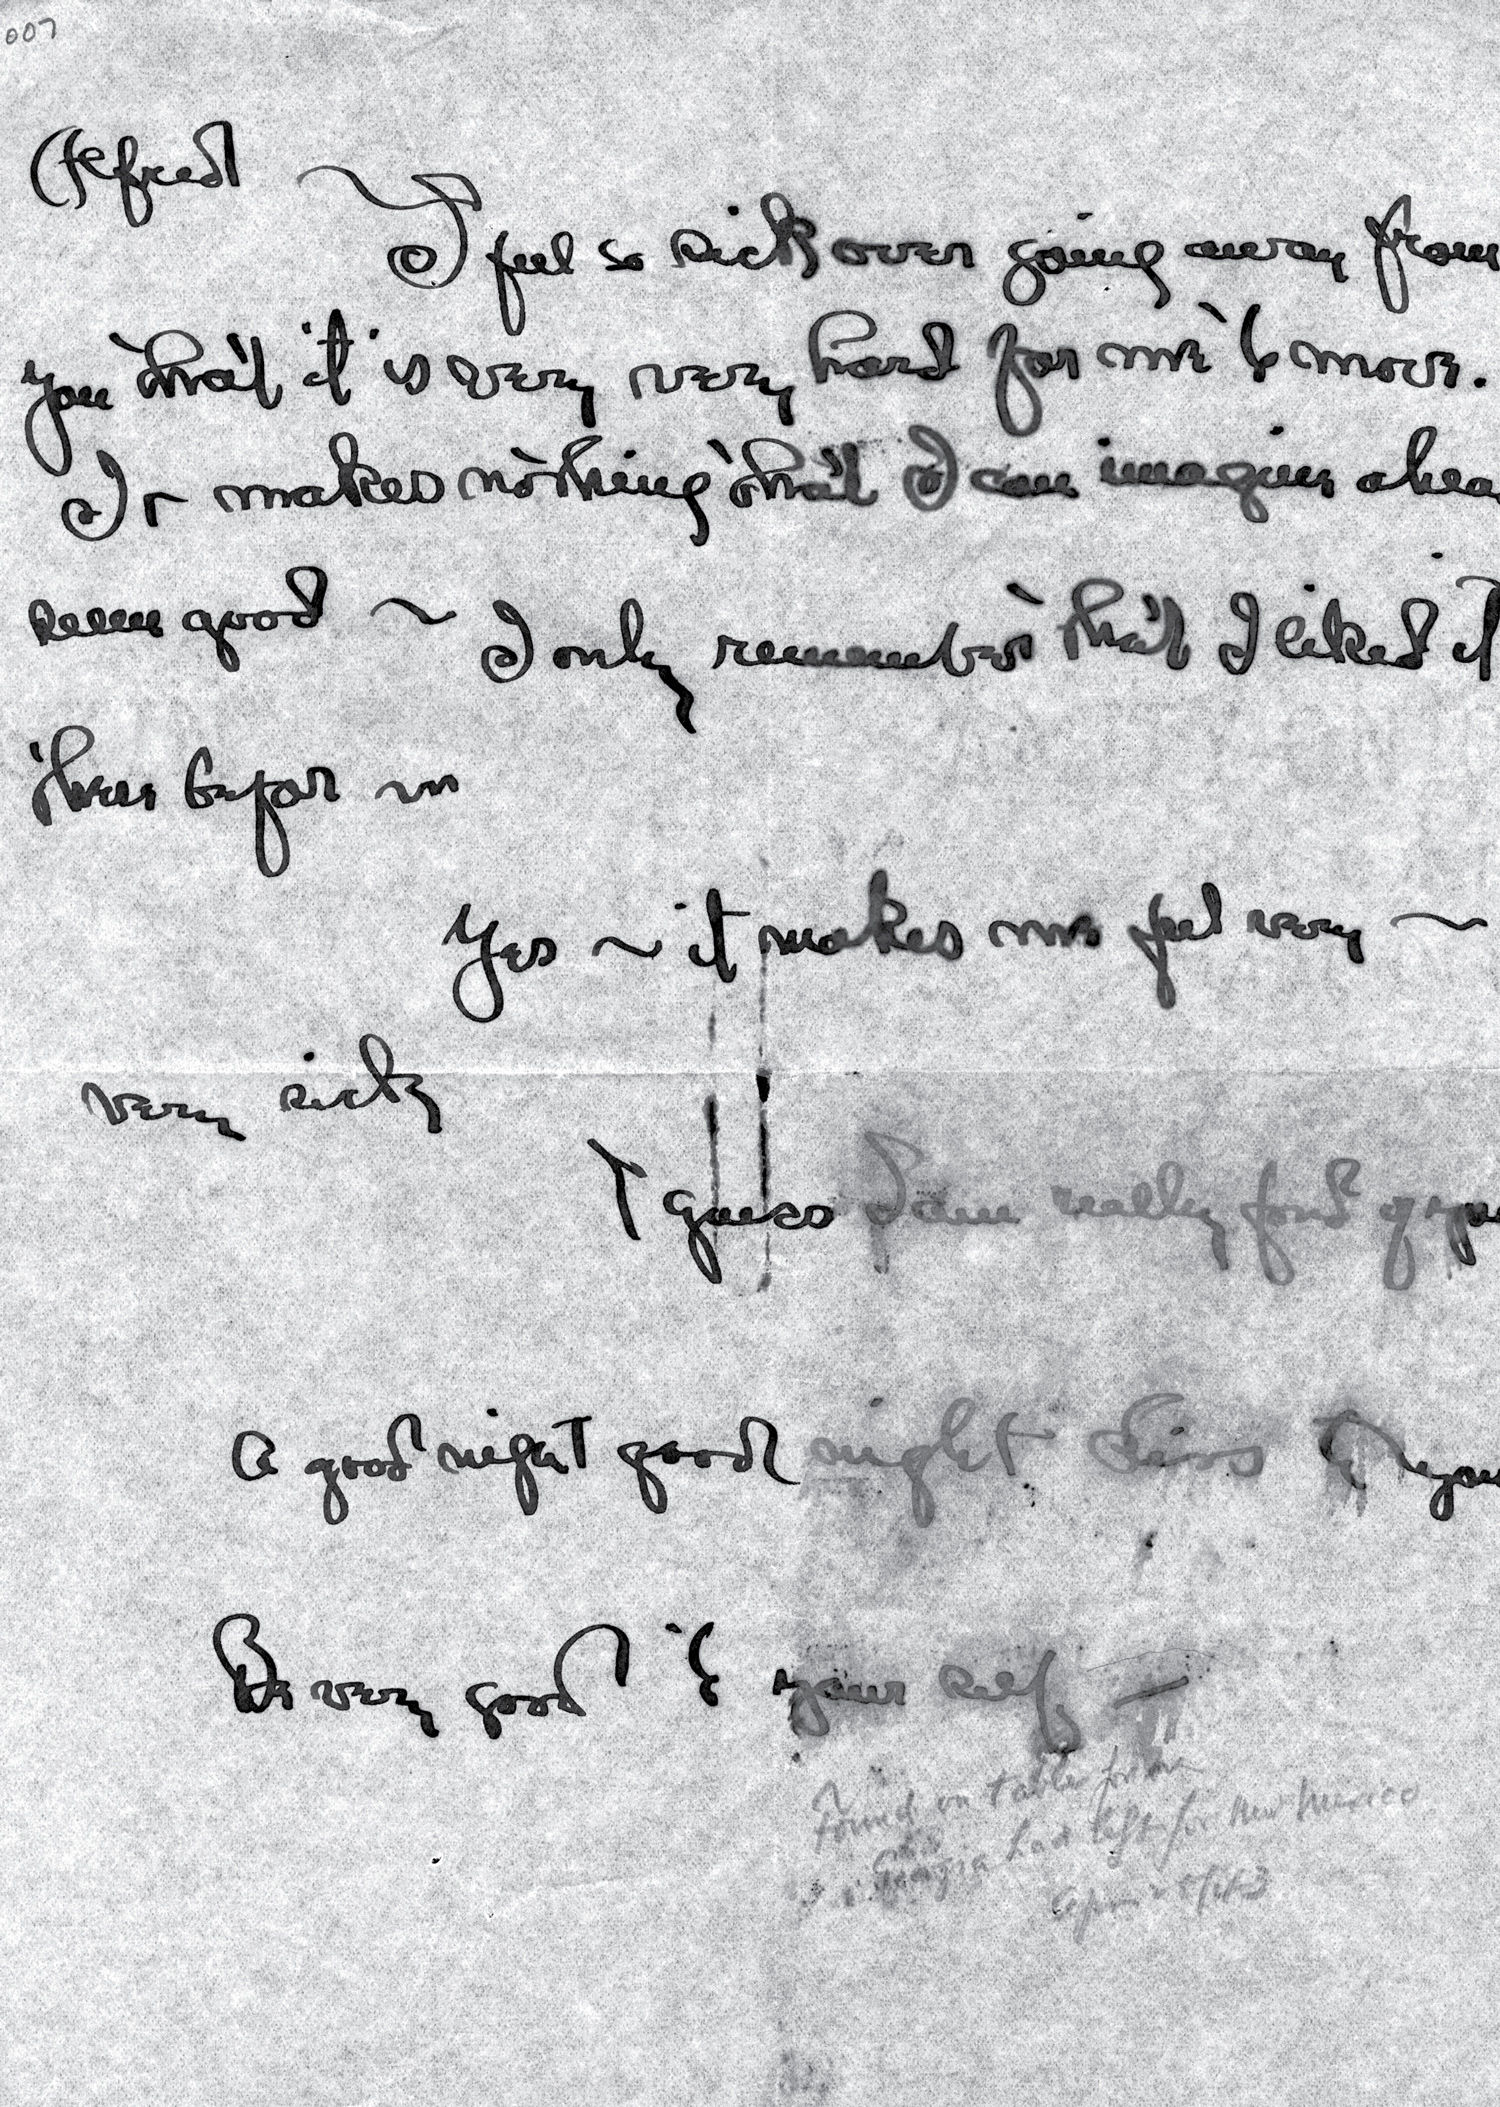 007
Alfred ~
I feel so sick over going away from
you that it is very very hard for me to move.
It makes nothing that I can imagine ahead
seem good ~ I only remember that I liked it
there before ~
Yes ~ it makes me feel very ~
very sick
I guess I am really fond of you
A good night good night kiss to you
Be very good to your self —
Found on table
Georgia had left for New Mexico